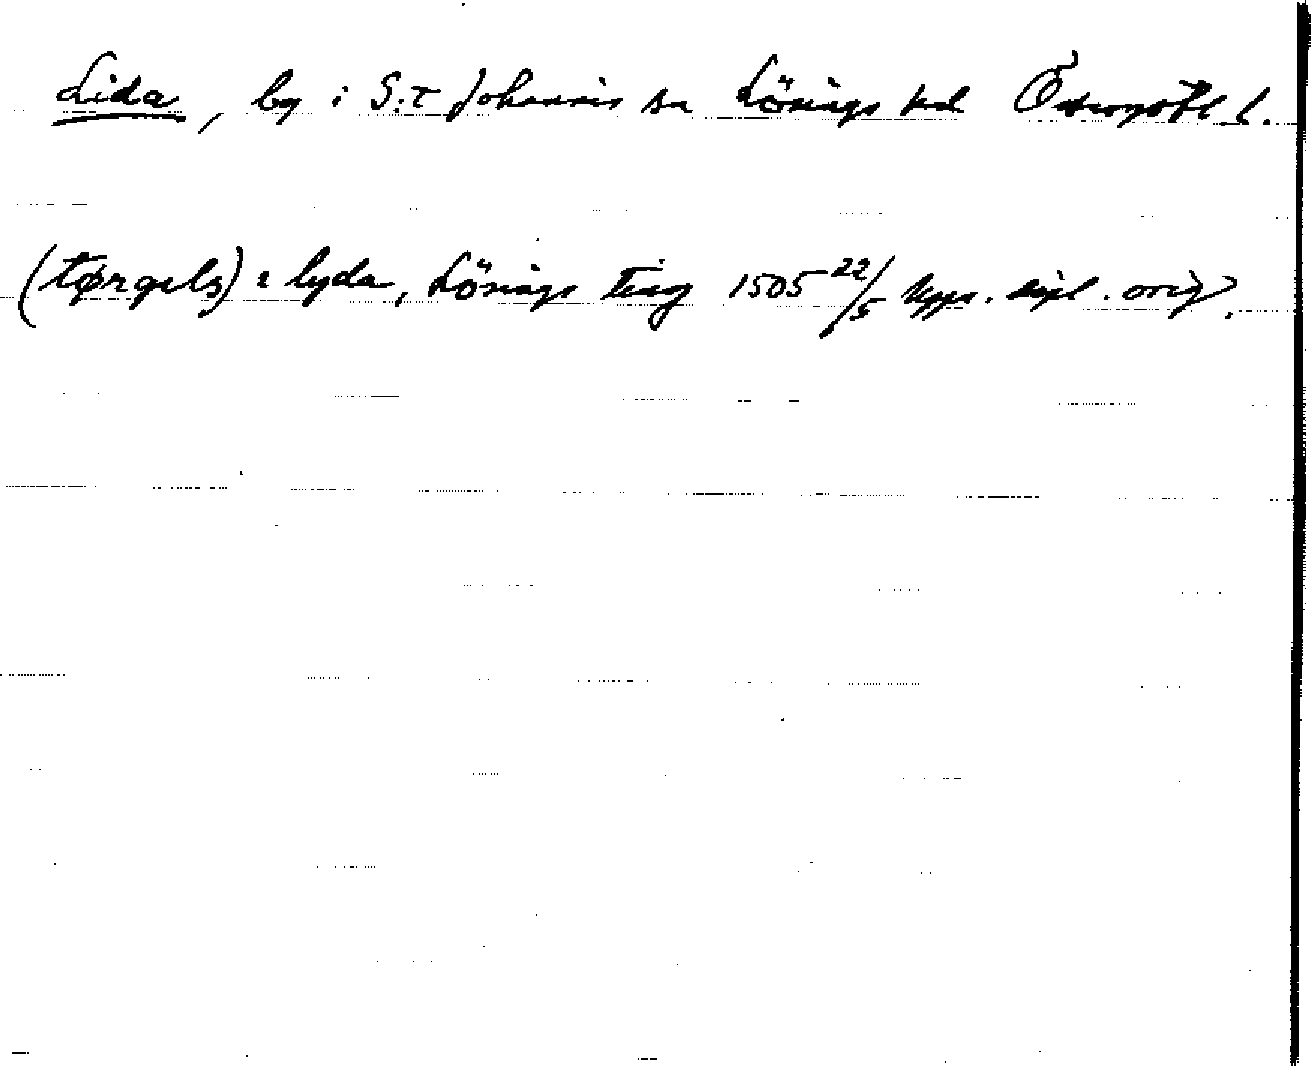 Lida, by i S:t Johannis sn Lösings hd Östergötl l.
(tørgels) i lyda, Lösings ting 1505 22/5 Upps. dipl. orig.